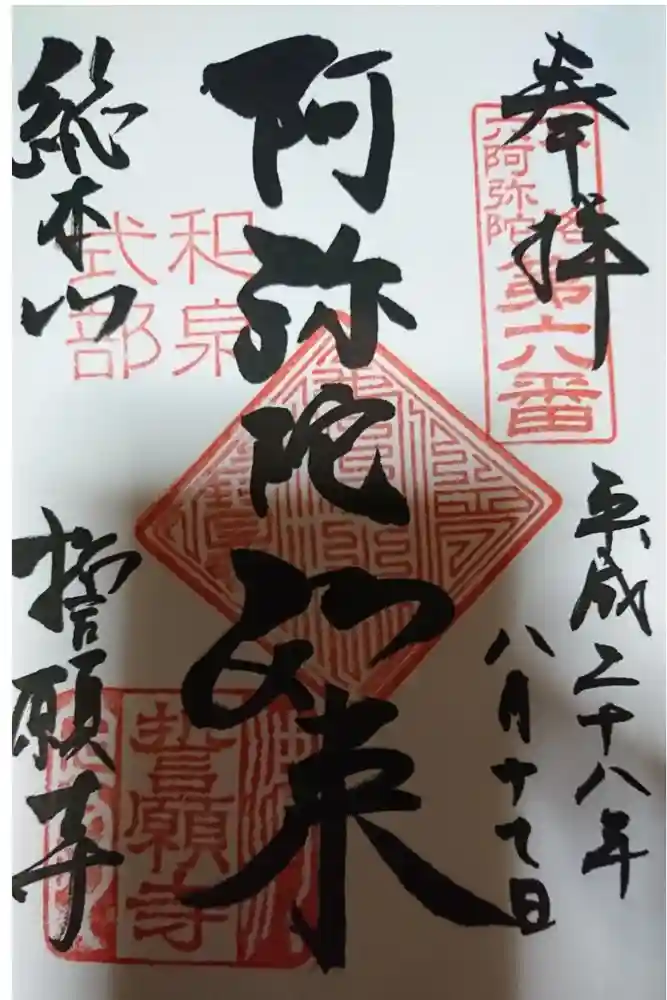 奉拝
六阿弥陀
第六番
平成二十八年
八月十七日
阿弥陀如来
和泉
式部
総本山
誓願寺
誓願寺